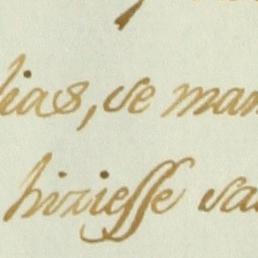 lias, se man
hiziesse sa